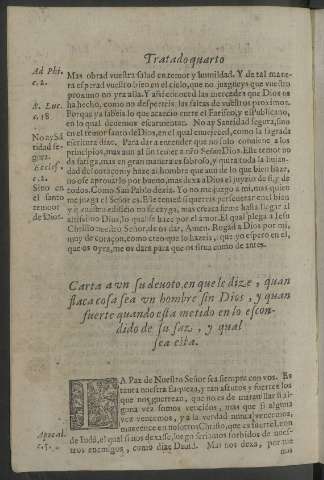 Tratado quarto
Ad Phi.
c. 2.
A. Luc.
c. 18
No ay Sã
tidad se-
gura.
Eccles.
c. 2.
Sino en
el santo
temor
de Dios.
Mas obrad vuestra salud en temor y humildad. Y de tal mane-
ra esperad vuestro bien en el cielo, que no juzgueys que vuestro
proximo no yra allà. Y assi reconoced las mercedes que Dios os
ha hecho, como no desperteis las faltas de vuestros proximos.
Porque ya sabeis lo que acaecio entre el Fariseo, y el Publicano,
en lo qual deuemos escarmentar. No ay Santidad segura, sino
en el temor santo de Dios, en el qual enuejeced, como la sagrada
escritura dize. Para dar a entender que no solo conuiene a los
principios, mas aun al fin temer a nro Señor Dios. Este temor no
da fatiga, mas en gran manera es sabroso, y quita toda la liuian-
dad del coraçon y haze al hombre que aun de lo que bien haze,
no ose aprouarlo por bueno, mas dexa a Dios el juyzio de si, y de
todos. Como San Pablo dezia. Yo no me juzgo a mi, mas quien
me juzga el Señor es. Este temed si quereis perseuerar en el bien
y si vuestro edificio no se cayga, mas crezca firme hasta llegar al
altissimo Dios, lo qual se haze por el amor. El qual plega a Iesu
Christo nuestro Señor, de os dar, Amen. Rogad a Dios por mi,
muy de coraçon, como creo que lo hazeis, que yo espero en el,
que os oyra, me os dara para que os sirua como de antes.
Carta a vn su deuoto, en que le dize, quan
flaca cosa sea vn hombre sin Dios, y quan
fuerte quando esta metido en lo escon-
dido de su faz, y qual
sea esta.
LA Paz de Nuestro Señor sea siempre con vos. Es
tanta nuestra flaqueza, y tan astutos y fuertes los
que nos guerrean, que no es de marauillar si al-
guna vez somos vencidos, mas que si alguna
vez vencemos, y a la verdad nunca vencemos,
mas vence en nosotros Christo, que es fuerte Leon
Apocal.
c. 5.
de Iudà, el qual si nos dexasse, luego seriamos sorbidos de nues-
tros enemigos, como dize Dauid. Mas nos dexa, por que